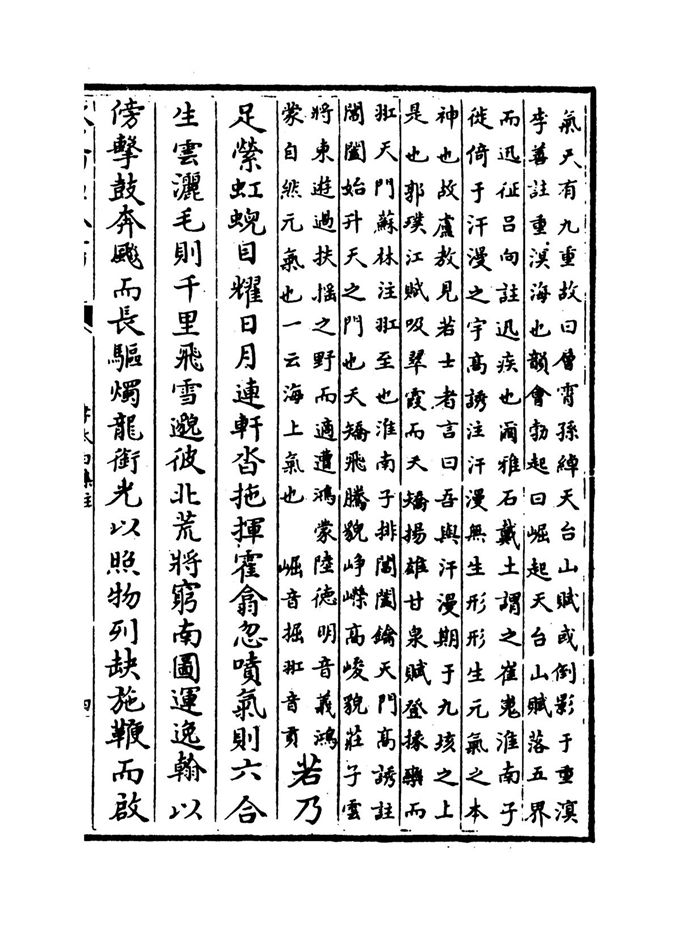 氣天有九重故曰層霄孫綽天台山賦或倒影于重溟
李善註重溟海也韻會勃起曰崛起天台山賦落五界
而迅征吕向註迅疾也爾雅石戴土謂之崔嵬淮南子
徙倚于汗漫之宇高誘注汗漫無生形形生元氣之本
神也故盧敖見若士者言曰吾與汗漫期于九垓之上
是也郭璞江賦吸翠霞而夭矯揚雄甘泉賦登椽欒而
羾天門蘇林注羾至也淮南子排閶闔鑰天門高誘註
閶闔始升天之門也夭矯飛騰貌崢嶸高峻貌莊子雲
將東遊過扶揺之野而適遭鴻蒙陸德明音義鴻
蒙自然元氣也一云海上氣也 崛音掘羾音貢
若乃
足縈虹蜺目耀日月連軒沓拖揮霍翕忽噴氣則六合
生雲灑毛則千里飛雪邈彼北荒將窮南圖運逸翰以
傍擊鼓奔飈而長驅燭龍銜光以照物列缺施鞭而啟